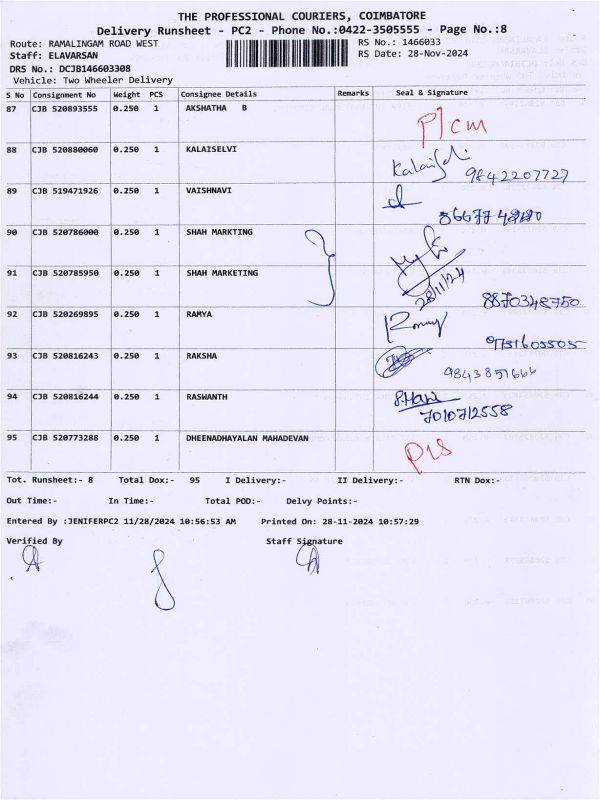 THE PROFESSIONAL COURIERS, COIMBATORE
Delivery Runsheet - PC2 - Phone No.:0422-3505555 - Page No.:8
Route: RAMALINGAM ROAD WEST RS No.: 1466033
Staff: ELAVARSAN RS Date: 28-Nov-2024
DRS No.: DCJB146603308
Vehicle: Two Wheeler Delivery
S No Consignment No Weight PCS Consignee Details Remarks Seal & Signature
87 CJB 520893555 0.250 1 AKSHATHA B
P/cm
88 CJB 520880060 0.250 1 KALAISELVI
Kalaiselvi 9842207727
89 CJB 519471926 0.250 1 VAISHNAVI
90 CJB 520786000 0.250 1 SHAH MARKTING
91 CJB 520785950 0.250 1 SHAH MARKETING
28/11/24 8870348750
92 CJB 520269895 0.250 1 RAMYA
Ramya 9751605505
93 CJB 520816243 0.250 1 RAKSHA
9843851666
94 CJB 520816244 0.250 1 RASWANTH
7010712558
95 CJB 520773288 0.250 1 DHEENADHAYALAN MAHADEVAN
Tot. Runsheet:- 8 Total Dox:- 95 I Delivery:- II Delivery:- RTN Dox:-
Out Time:- In Time:- Total POD:- Delvy Points:-
Entered By :JENIFERPC2 11/28/2024 10:56:53 AM Printed On: 28-11-2024 10:57:29
Verified By Staff Signature